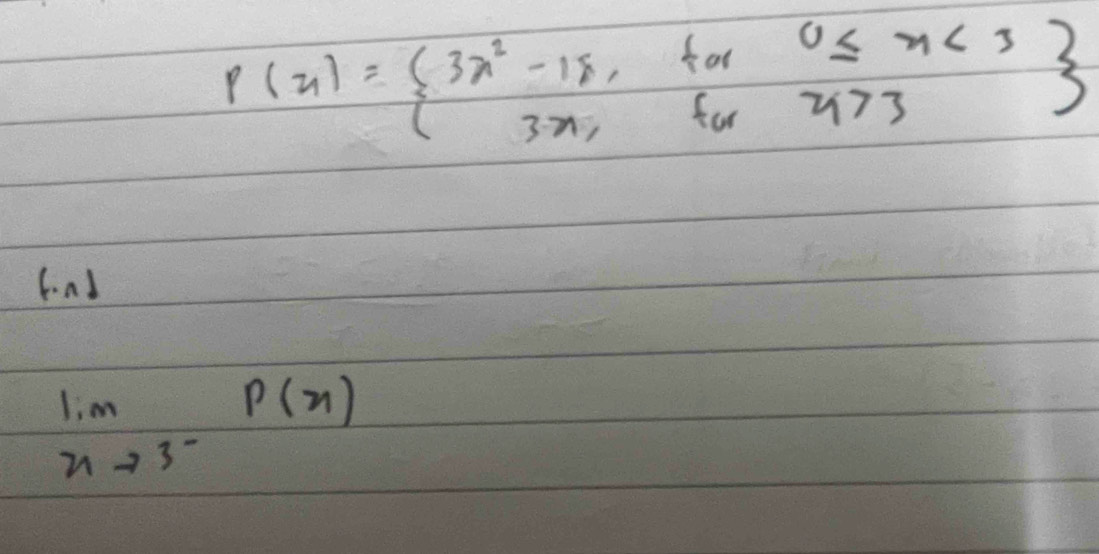 P(x) = { 3x² - 18, for 0 ≤ x < 3 }
3x, for x > 3
find
lim P(x)
x → 3⁻